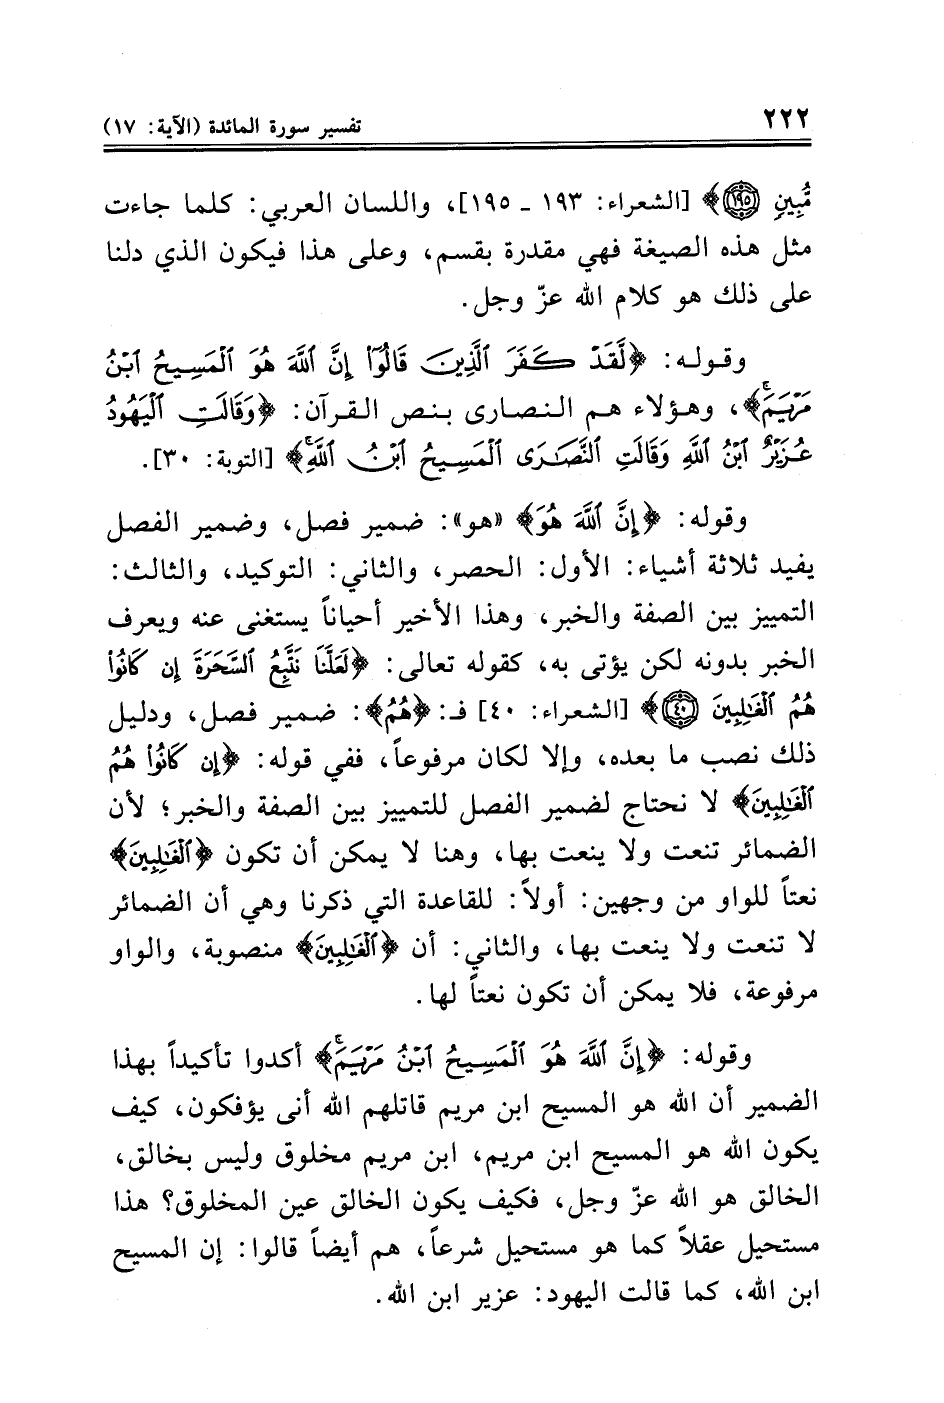 ٢٢٢
تفسير سورة المائدة (الآية: ١٧)
مُّبِينٍ ١٩٥﴾ [الشعراء: ١٩٣ ـ ١٩٥]، واللسان العربي: كلما جاءت
مثل هذه الصيغة فهي مقدرة بقسم، وعلى هذا فيكون الذي دلنا
على ذلك هو كلام الله عزّ وجل.
وقوله: ﴿لَّقَدْ كَفَرَ ٱلَّذِينَ قَالُوٓا۟ إِنَّ ٱللَّهَ هُوَ ٱلْمَسِيحُ ٱبْنُ
مَرْيَمَ ۚ﴾، وهؤلاء هم النصارى بنص القرآن: ﴿وَقَالَتِ ٱلْيَهُودُ
عُزَيْرٌ ٱبْنُ ٱللَّهِ وَقَالَتِ ٱلنَّصَـٰرَى ٱلْمَسِيحُ ٱبْنُ ٱللَّهِ ۖ﴾ [التوبة: ٣٠].
وقوله: ﴿إِنَّ ٱللَّهَ هُوَ﴾ «هو»: ضمير فصل، وضمير الفصل
يفيد ثلاثة أشياء: الأول: الحصر، والثاني: التوكيد، والثالث:
التمييز بين الصفة والخبر، وهذا الأخير أحياناً يستغنى عنه ويعرف
الخبر بدونه لكن يؤتى به، كقوله تعالى: ﴿لَعَلَّنَا نَتَّبِعُ ٱلسَّحَرَةَ إِن كَانُوا۟
هُمُ ٱلْغَـٰلِبِينَ ٤٠﴾ [الشعراء: ٤٠] فـ: ﴿هُمُ﴾: ضمير فصل، ودليل
ذلك نصب ما بعده، وإلا لكان مرفوعاً، ففي قوله: ﴿إِن كَانُوا۟ هُمُ
ٱلْغَـٰلِبِينَ﴾ لا نحتاج لضمير الفصل للتمييز بين الصفة والخبر؛ لأن
الضمائر تنعت ولا ينعت بها، وهنا لا يمكن أن تكون ﴿ٱلْغَـٰلِبِينَ﴾
نعتاً للواو من وجهين: أولاً: للقاعدة التي ذكرنا وهي أن الضمائر
لا تنعت ولا ينعت بها، والثاني: أن ﴿ٱلْغَـٰلِبِينَ﴾ منصوبة، والواو
مرفوعة، فلا يمكن أن تكون نعتاً لها.
وقوله: ﴿إِنَّ ٱللَّهَ هُوَ ٱلْمَسِيحُ ٱبْنُ مَرْيَمَ ۚ﴾ أكدوا تأكيداً بهذا
الضمير أن الله هو المسيح ابن مريم قاتلهم الله أنى يؤفكون، كيف
يكون الله هو المسيح ابن مريم، ابن مريم مخلوق وليس بخالق،
الخالق هو الله عزّ وجل، فكيف يكون الخالق عين المخلوق؟ هذا
مستحيل عقلاً كما هو مستحيل شرعاً، هم أيضاً قالوا: إن المسيح
ابن الله، كما قالت اليهود: عزير ابن الله.